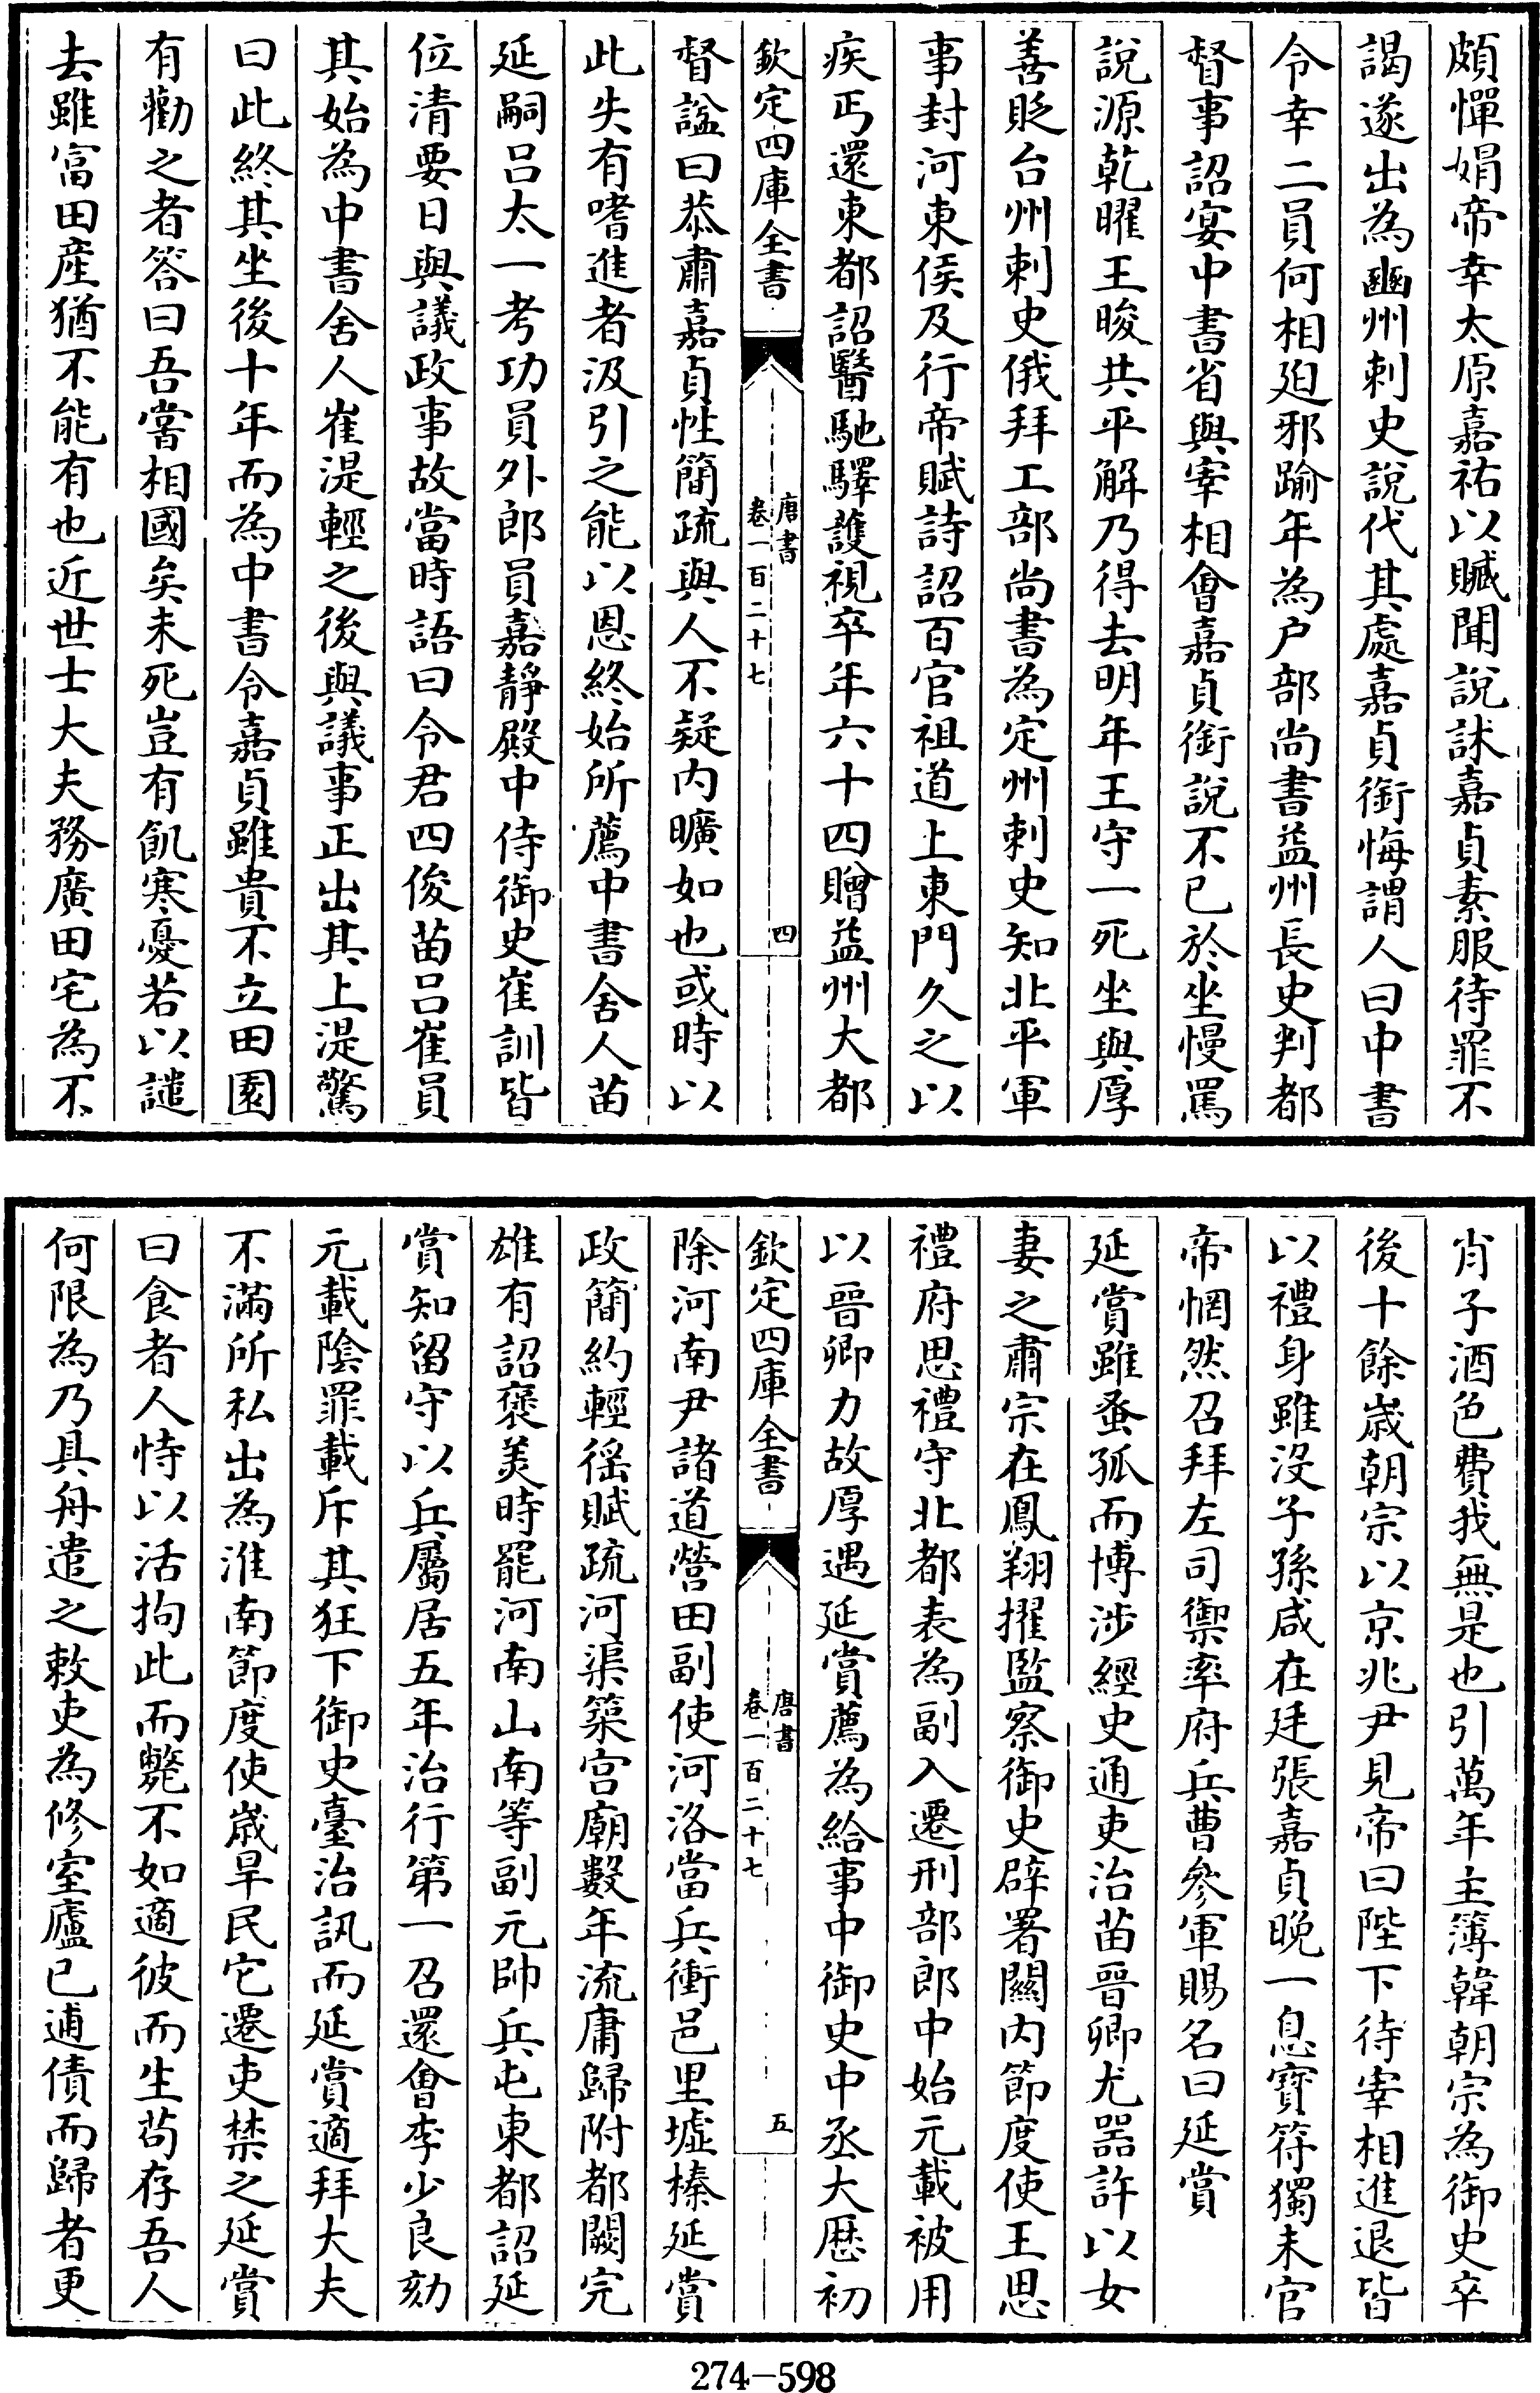 頗憚娟帝幸太原嘉祐以贓聞說訹嘉貞素服待罪不
謁遂出為豳州刺史說代其處嘉貞銜悔謂人曰中書
令幸二員何相廹邪踰年為户部尚書益州長史判都
督事詔宴中書省與宰相會嘉貞銜說不已於坐慢罵
說源乾曜王晙共平解乃得去明年王守一死坐與厚
善貶台州刺史俄拜工部尚書為定州刺史知北平軍
事封河東侯及行帝賦詩詔百官祖道上東門久之以
疾丐還東都詔醫馳驛護視卒年六十四贈益州大都
欽定四庫全書
唐書
卷一百二十七
四
督諡曰恭肅嘉貞性簡疏與人不疑内曠如也或時以
此失有嗜進者汲引之能以恩終始所薦中書舍人苗
延嗣吕太一考功員外郎員嘉靜殿中侍御史崔訓皆
位清要日與議政事故當時語曰令君四俊苗吕崔員
其始為中書舍人崔湜輕之後與議事正出其上湜驚
曰此終其坐後十年而為中書令嘉貞雖貴不立田園
有勸之者答曰吾嘗相國矣未死豈有飢寒憂若以譴
去雖富田産猶不能有也近世士大夫務廣田宅為不
肖子酒色費我無是也引萬年主簿韓朝宗為御史卒
後十餘歲朝宗以京兆尹見帝曰陛下待宰相進退皆
以禮身雖沒子孫咸在廷張嘉貞晚一息寳符獨未官
帝惘然召拜左司禦率府兵曹參軍賜名曰延賞
延賞雖蚤孤而博涉經史通吏治苗晉卿尤器許以女
妻之肅宗在鳳翔擢監察御史辟署關内節度使王思
禮府思禮守北都表為副入遷刑部郎中始元載被用
以晉卿力故厚遇延賞薦為給事中御史中丞大厯初
欽定四庫全書
唐書
卷一百二十七
五
除河南尹諸道營田副使河洛當兵衝邑里墟榛延賞
政簡約輕徭賦疏河渠築宫廟數年流庸歸附都闕完
雄有詔褒美時罷河南山南等副元帥兵屯東都詔延
賞知留守以兵屬居五年治行第一召還會李少良劾
元載陰罪載斥其狂下御史臺治訊而延賞適拜大夫
不滿所私出為淮南節度使歲旱民它遷吏禁之延賞
曰食者人恃以活拘此而斃不如適彼而生苟存吾人
何限為乃具舟遣之敕吏為修室廬已逋債而歸者更
274-598